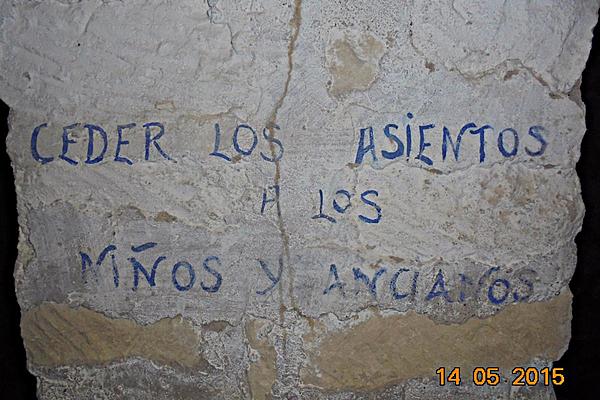 CEDER LOS ASIENTOS
A LOS
NIÑOS Y ANCIANOS
14 05 2015